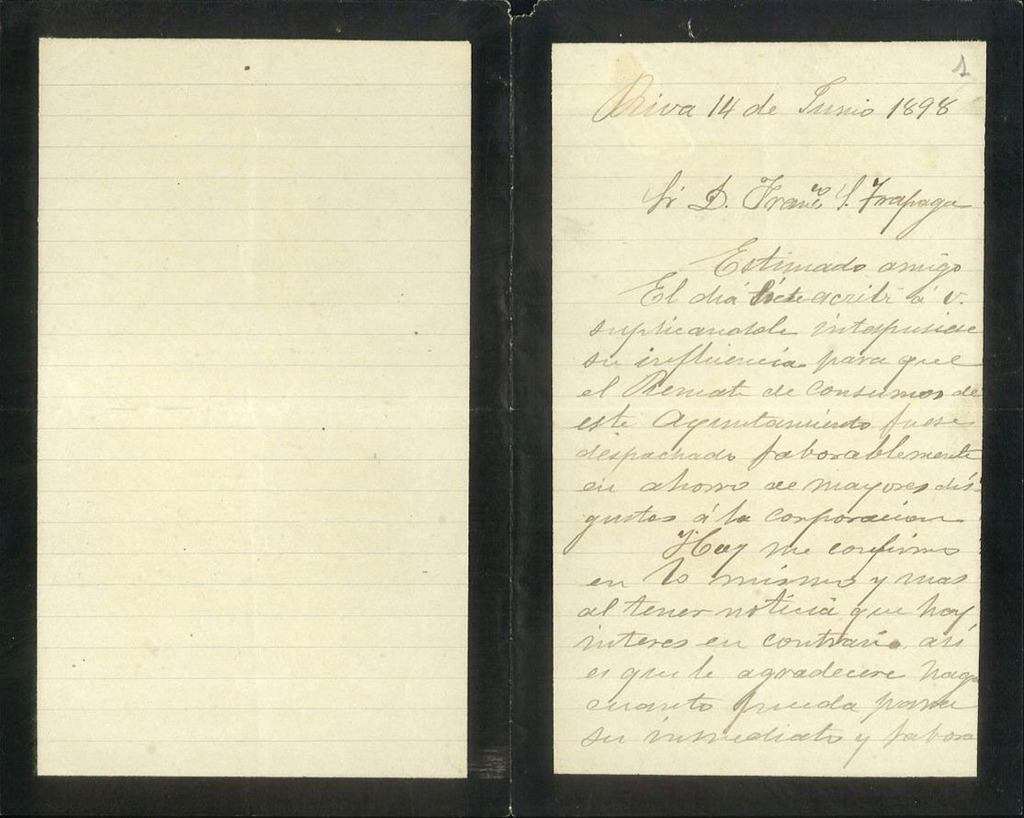 1
Riva 14 de Junio 1898
Sr D. Franco S. Trapaga
Estimado amigo
El dia siete acribi á V.
suplicandole intepusiese
su influencia para que
el Remate de consumos de
este Ayuntamiento fuese
despachado faborablemente
en ahorro de mayores dis
gustos á la corporacion
Hoy me confirmo
en lo mismo y mas
al tener noticia que hay
interes en contrario asi
es que le agradecere haga
cuanto pueda para
su inmediato y fabora